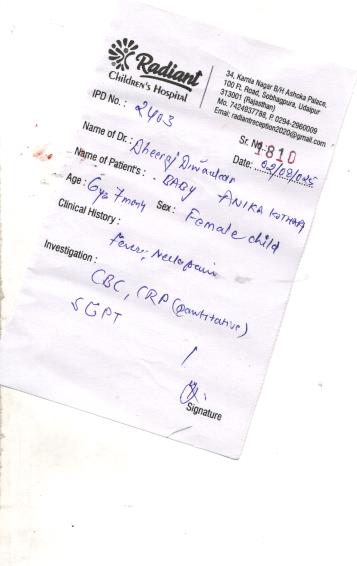 Radiant
Children's Hospital
34, Kamla Nagar B/H Ashoka Palace,
100 Ft. Road, Sobhagpura, Udaipur
313001 (Rajasthan)
Mo. 7424937788, P. 0294-2960009
Email: radiantreception2020@gmail.com
IPD No. : 2403
Sr. No. 1810
Name of Dr. : Dheeraj Diwakar
Date: 02/09/025
Name of Patient's : BABY ANIKA KOTHARI
Age : 6ys 7 mon Sex : Female child
Clinical History : Fever, pain
Investigation : CBC, CRP (Quantitative)
SGPT
Signature